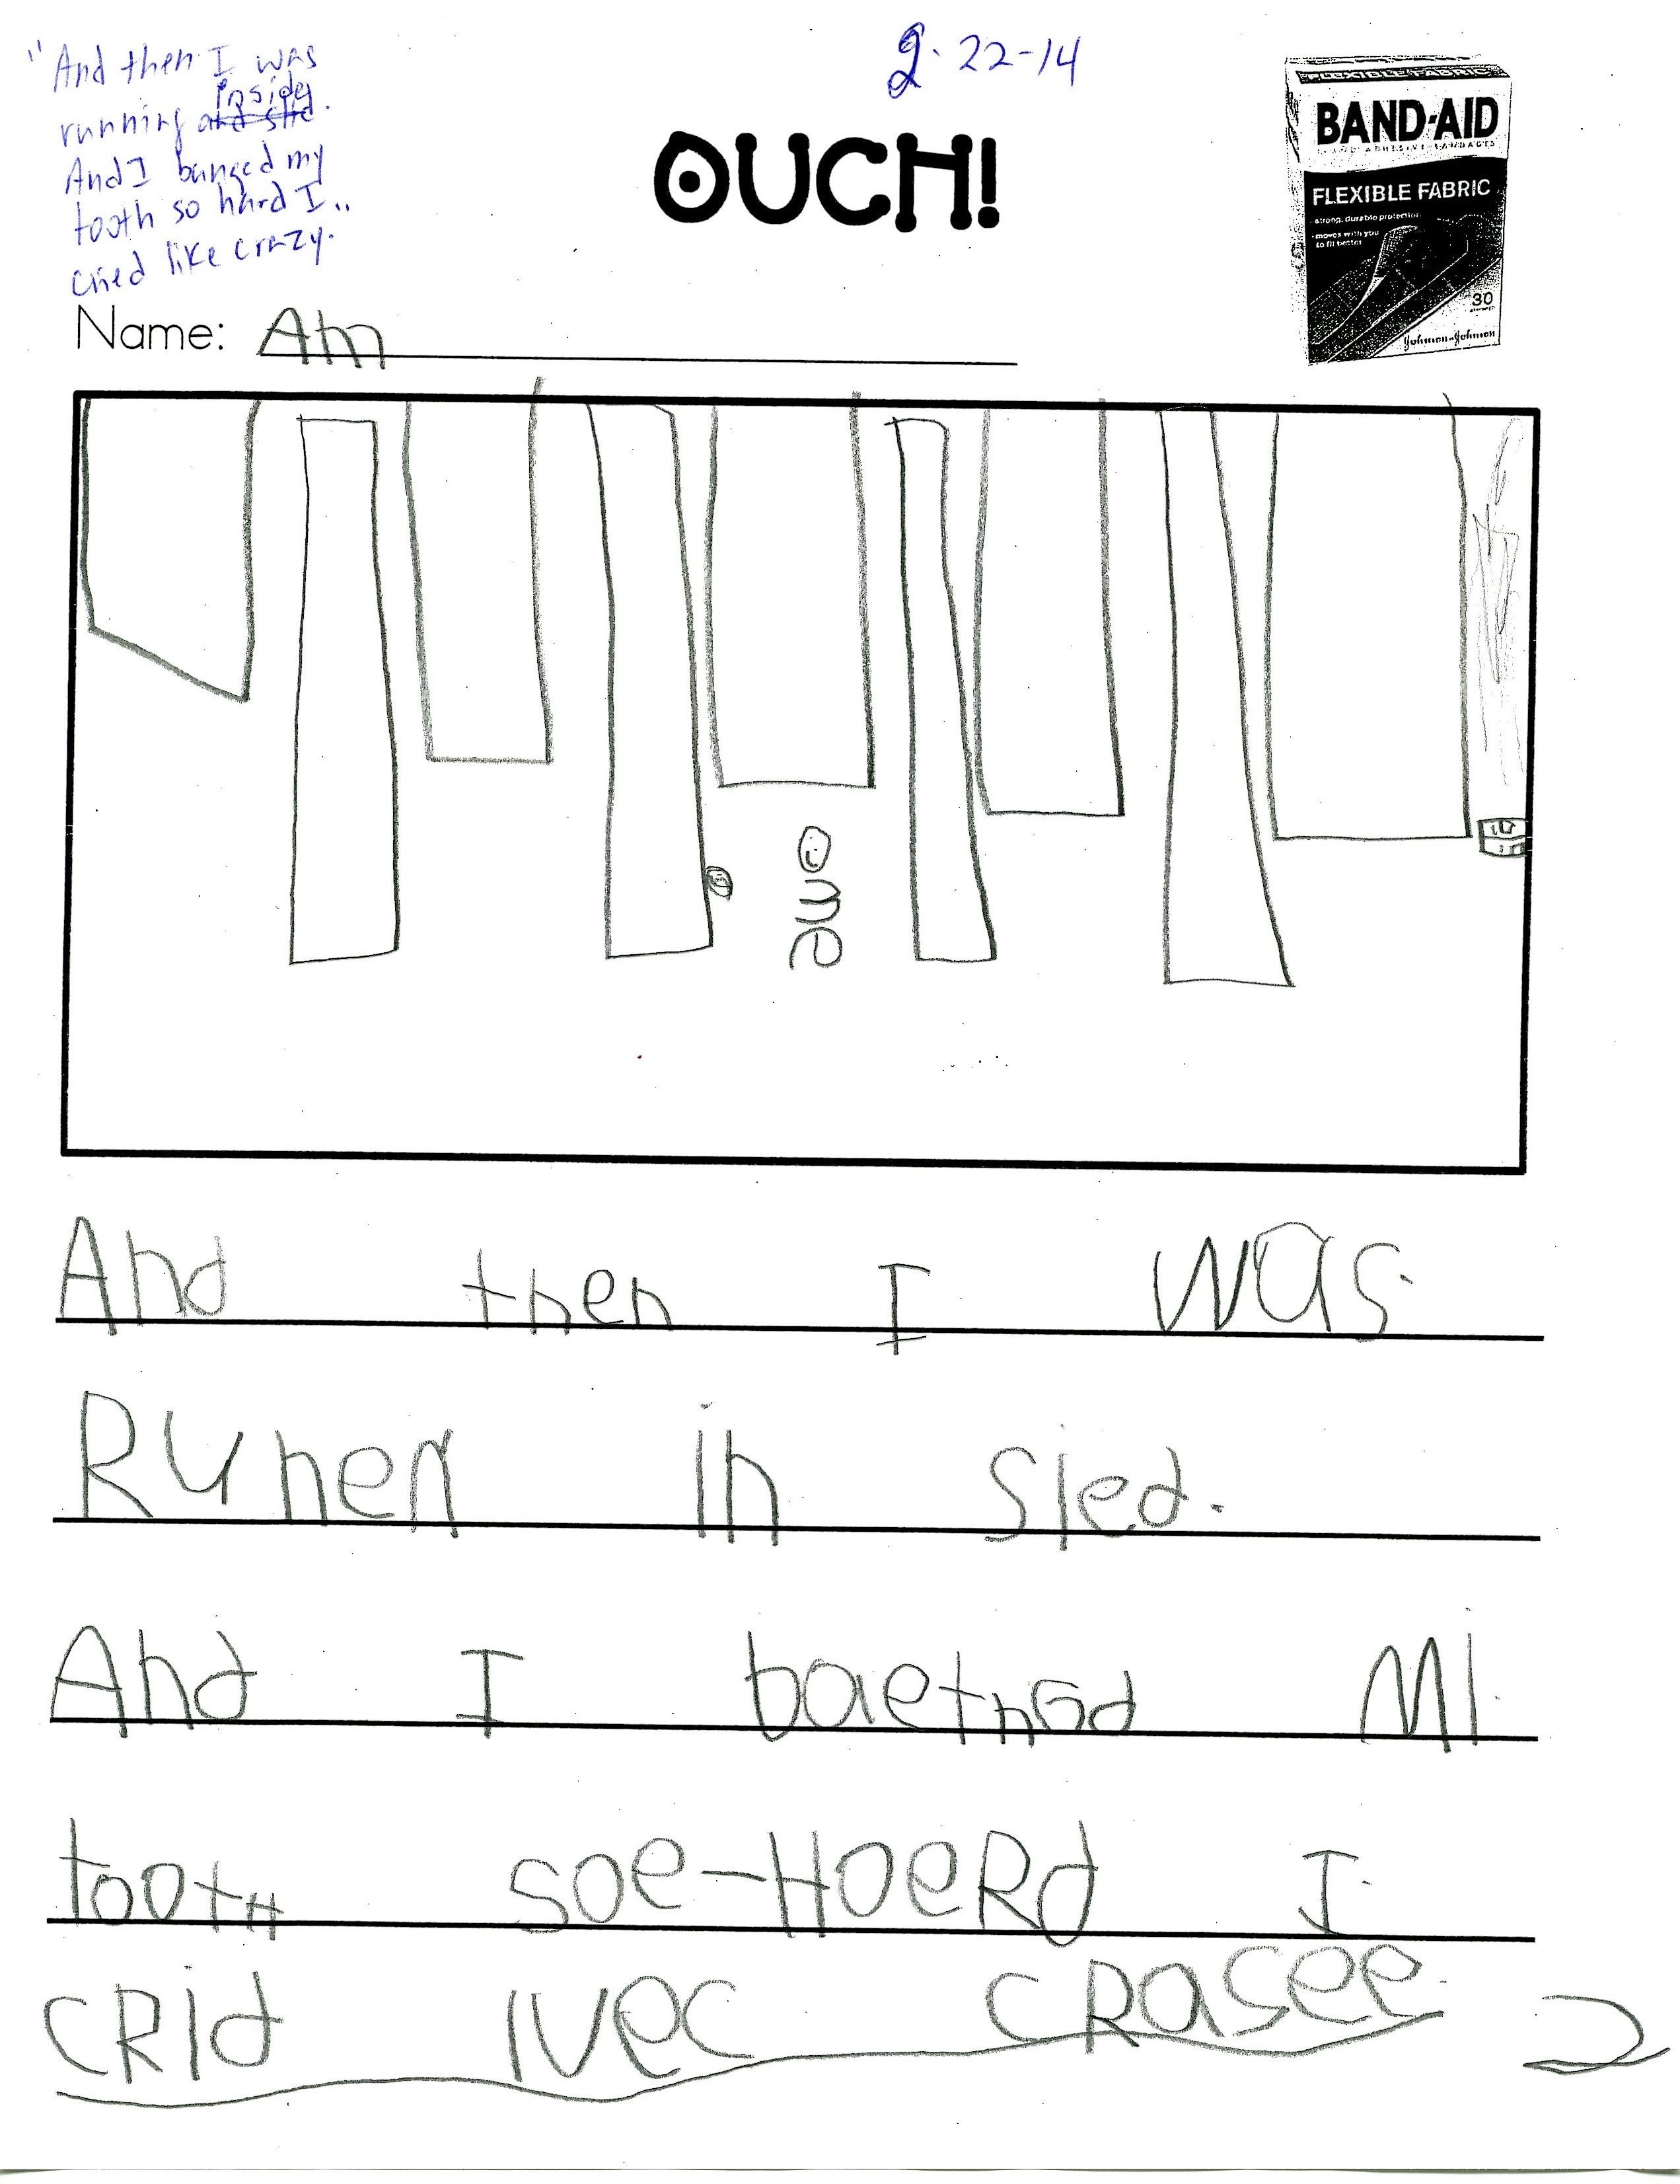 "And then I was
running and slid. inside
And I banged my
tooth so hard I..
cried like crazy.
2-22-14
OUCH!
FLEXIBLE FABRIC
BAND-AID
BRAND ADHESIVE BANDAGES
FLEXIBLE FABRIC
strong, durable protection
moves with you
to fit better
30
Johnson & Johnson
Name: An
me
And then I was.
RUnen in sied.
And I baetnGd MI
tootH soe-HoeRd I
CRid lvec CRasee